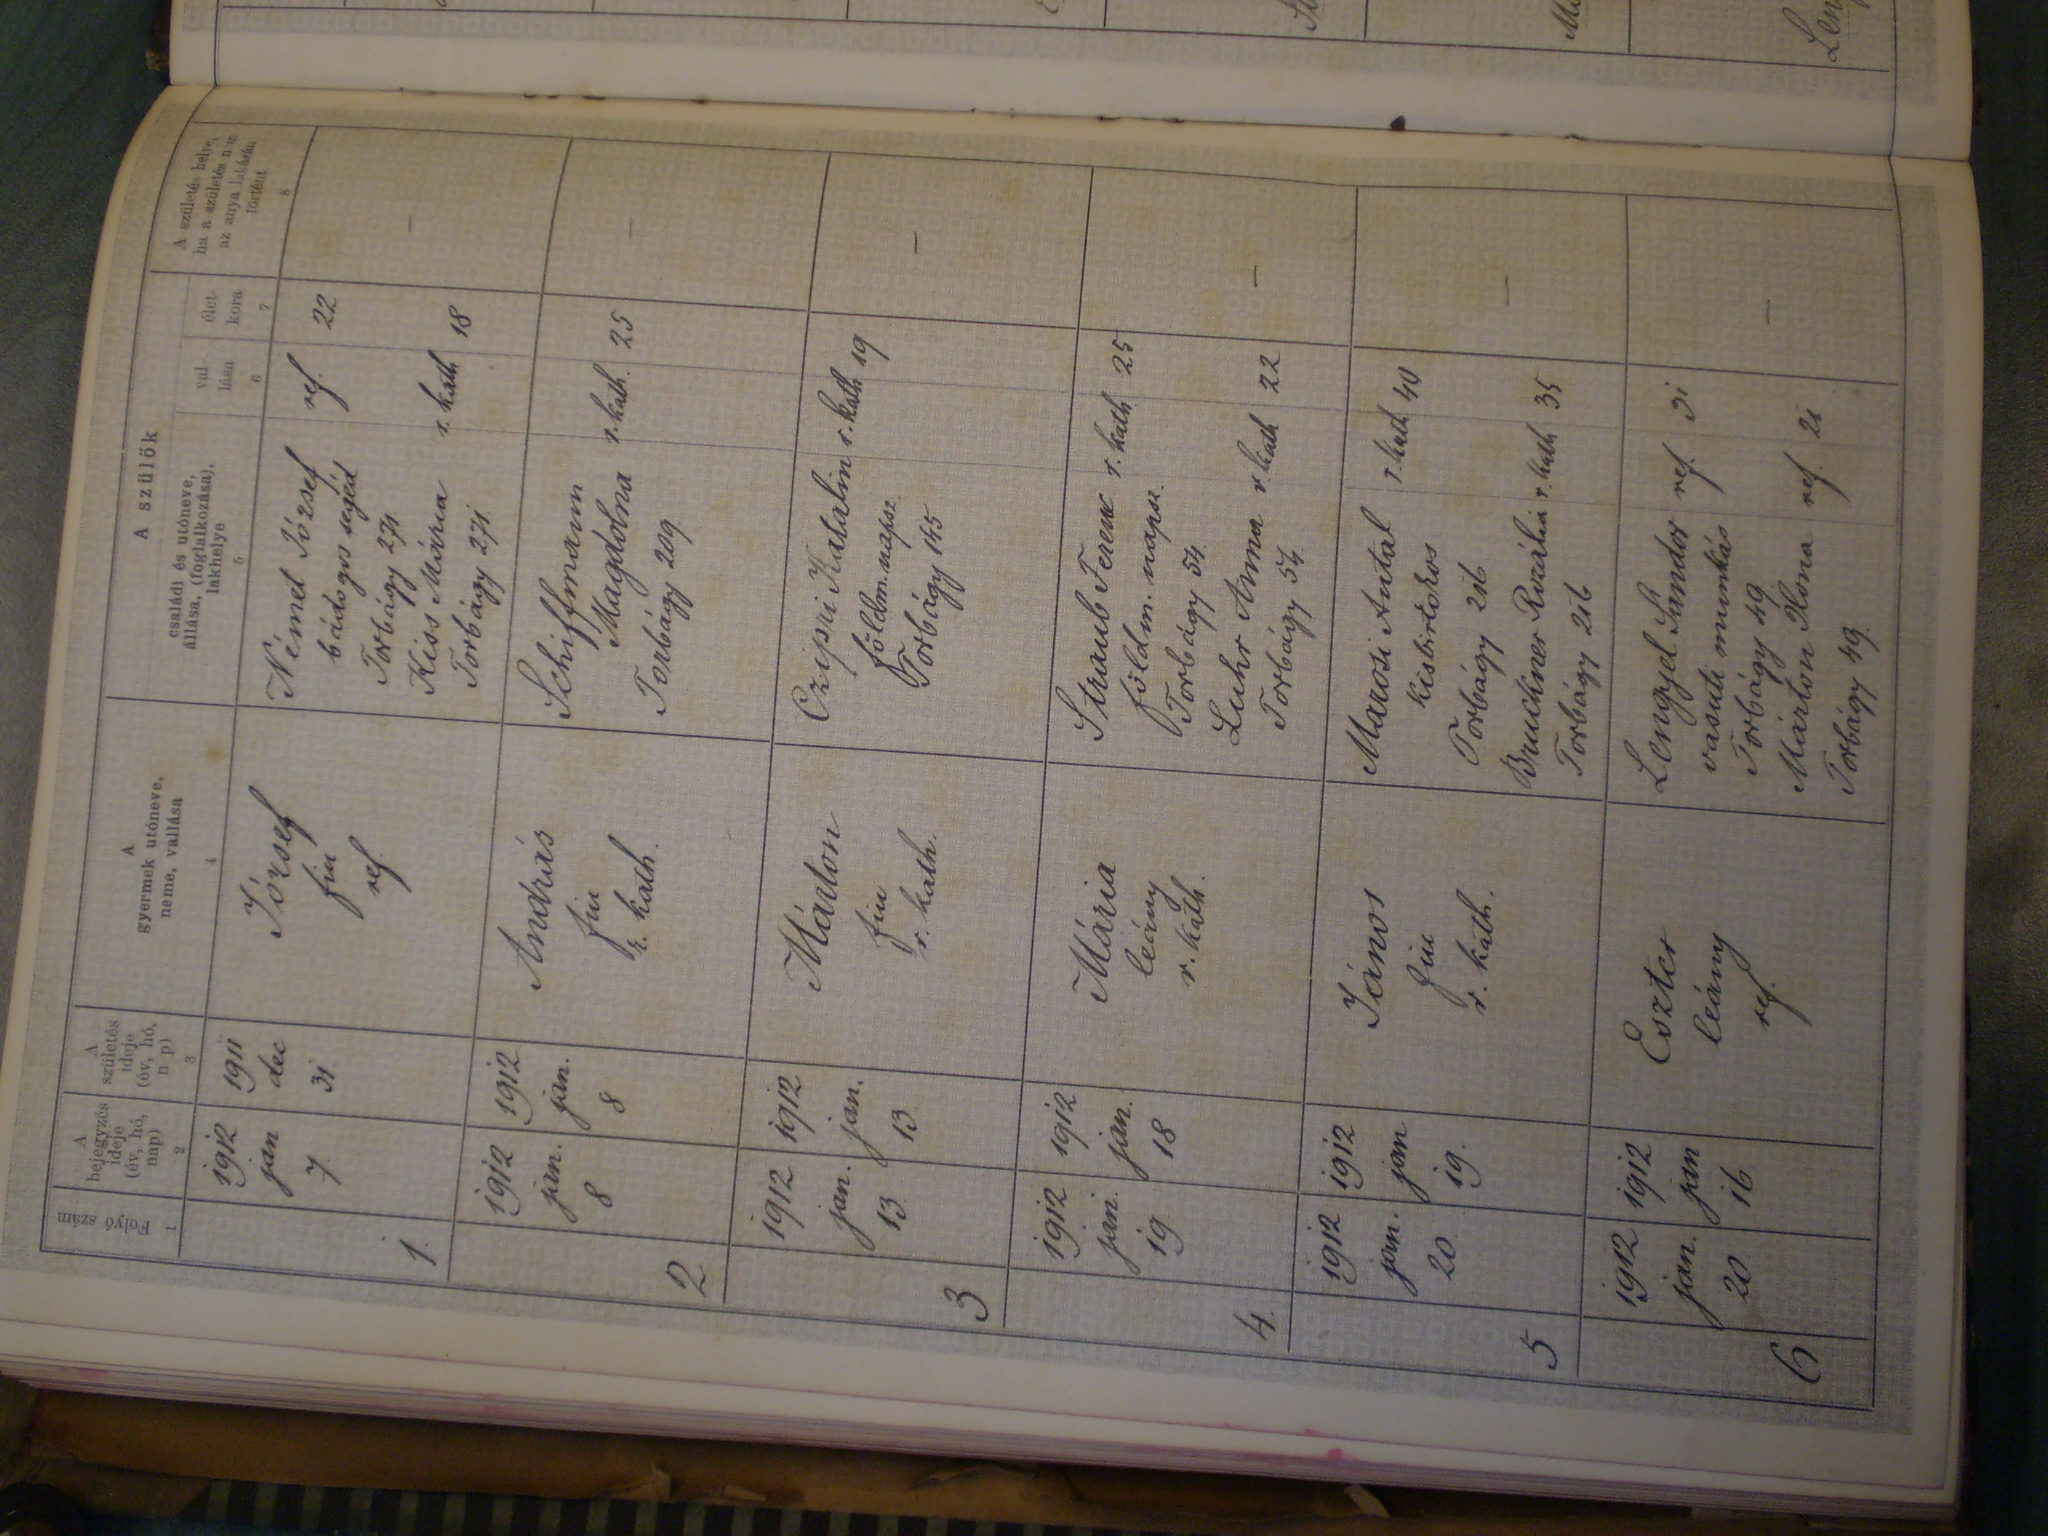 A szülők
Folyó szám
A bejegyzés ideje (év, hó, nap)
A születés ideje (év, hó, n p)
A gyermek utóneve, neme, vallása
családi és utóneve, állása, (foglalkozása), lakhelye
val-lása
élet-kora
A születés helye, ha a születés nem az anya lakásán történt
1 2 3 4 5 6 7 8
1.
1912 jan 7.
1911 dec 31.
József
fiu
ref.
Német József ref. 22
bádogos segéd
Torbágy 271.
Kiss Mária r. kath. 18
Torbágy 271.
—
2
1912 jan. 8
1912 jan. 8
András
fiu
r. kath.
Schiffmann
Magdolna r. kath. 25
Torbágy 209.
—
3
1912 jan. 13.
1912 jan. 13.
Márton
fiu
r. kath.
Czipri Katalin r. kath 19
földm. napsz.
Torbágy 145
—
4.
1912 jan. 19.
1912 jan. 18
Mária
leány
r. kath.
Straub Ferenc r. kath. 25
földm. napsz.
Torbágy 54.
Luhr Anna r. kath 22
Torbágy 54.
—
5
1912 jan. 20
1912 jan 19.
János
fiu
r. kath.
Marosi Antal r. kath 40
kisbirtokos
Torbágy 216
Bruckner Rozália r. kath 35
Torbágy 216
—
6
1912 jan. 20
1912 jan 16
Eszter
leány
ref.
Lengyel Sándor ref. 31
vasuti munkás
Torbágy 49
Márton Ilona ref. 21
Torbágy 49.
—